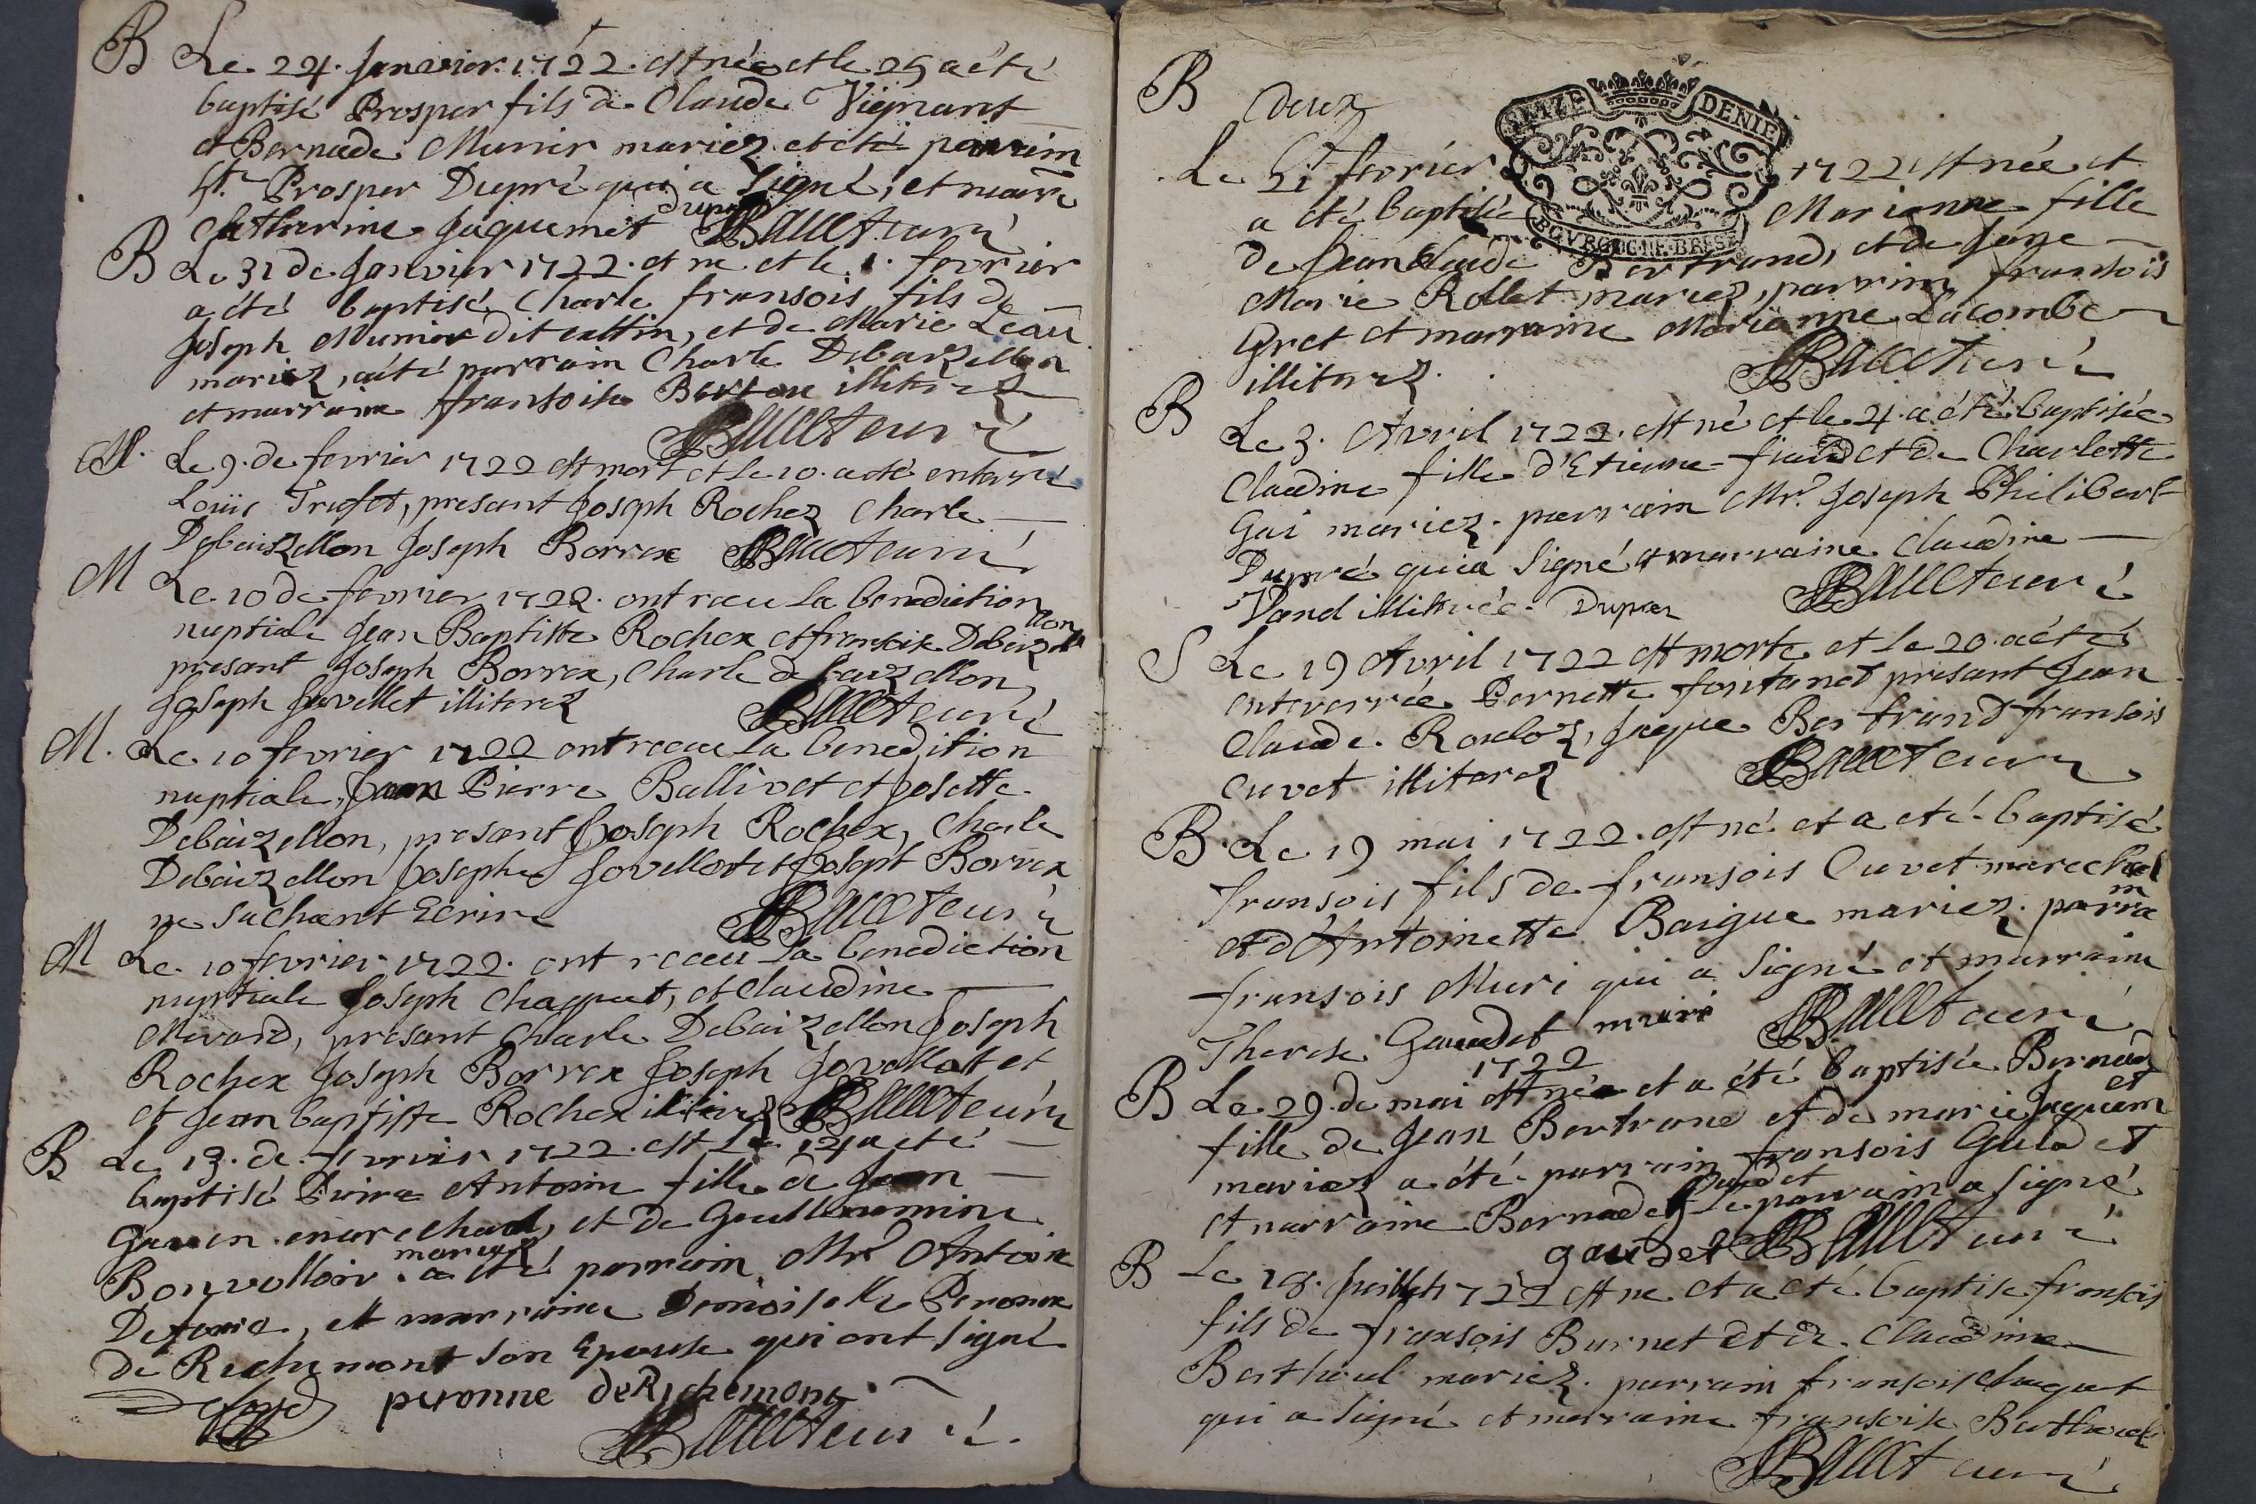 B Le 24. Janvier. 1722. est née et le 25 a été
baptisé Prosper fils de Claude Vignant
et Bernade Munier mariez. et été parrim
Sr. Prosper Dupré qui a signé, et marre
Catherine Jaquemet dupré Ballet curé
B Le 31 de Janvier 1722. et ne et le 1. fevrier
a été baptisé Charle fransois fils de
Joseph Munier dit cattin, et de Marie Leau
mariez, a été parrain Charle Debaizellon
et marraine fransoise illiterez
Ballet curé
M. Le 9. de fevrier 1722 est mort et le 10. a été enterré
Louis Trufet, presant Joseph Rochez Charle
Debaizellon Joseph Borrex Ballet curé
M Le. 10 de fevrier 1722. ont receu la benediction
nuptiale Jean Baptiste Rochex et fransoise Debaizellon
presant Joseph Borrex, Charle debaizellon,
Joseph Javellet illiterez Ballet curé
M. Le. 10 fevrier 1722 ont receu la benedition
nuptiale, Jean Pierre Ballivet et Josette
Debaizellon, presant Joseph Rochex, Charle
Debaizellon Joseph Jovellot et Joseph Borrex
ne sachant Ecrire Ballet curé
M Le. 10 fevrier 1722. ont receu la benediction
nuptiale Joseph Chaquet, et Claudine
Mevard, presant Charle Debaizellon Joseph
Rochex Joseph Borrex Joseph Jovellot et
et Jean baptiste Rochex illiterez Ballet curé
B Le 13. de. fevrier 1722. est Le 14 a eté
baptisé Antoine fille de Jean
marechal, et de
Bonvolloir. mariez a été parrain Mr. Antoine
, et marraine Demoiselle Peronne
de Richemont son Epouse qui ont signé
peronne de Richemont
Ballet curé.
B deux
SEIZE DENIE
BOVRGOGNE. BRESSE
Le fevrier 1722 est née et
a été baptisée Marianne fille
de Jean Claude Bertrand, et de Jane
Marie Rollet mariez, parrim fransois
Gret et marraine Marianne Lacombe
illiterez. Ballet curé
B Le 3. Avril 1722. est né et le 4. a été baptisée
Claudine fille d'Etienne et de Charlotte
Gai mariez. parrain Mr. Joseph Philibert
Dupré qui a signé et marraine Claudine
Vand illitrée. Dupré Ballet curé
S Le 19 Avril 1722 est morte et le 20. a été
enteverrée Pernette fontanet presant Jean
Claude. Rouloz, Jaque Bertrand fransois
Cuvet illiterez Ballet curé
B. Le 19 mai 1722. est né et a eté. baptisé
fransois fils de fransois Cuvet marechal
et d'Antoinette Baigue mariez. parrain
fransois Muri qui a signé et marraine
Therese Gaudet muri Ballet curé
B Le 29. de mai 1722 est née et a été baptisée Bernade
fille de Jean Bertrand et de marie Jaquemet
mariez a été parrain fransois Gaudet
et marraine Bernade Gaudet Le parrain a signé
gaudet Ballet curé
B Le 18. Juillet 1722 est ne et a eté baptise fransois
fils de fransois Burnet et de. Claudine
Berthoul mariez. parrain fransois Chaquet
qui a signé et marraine fransoise Berthoul
Ballet curé